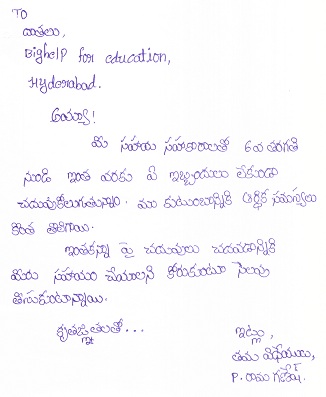 TO
దాతలు,
Bighelp for education,
Hyderabad.
అయ్యా!
మీ సహాయ సహకారాలతో 6వ తరగతి
నుండి ఇంత వరకు ఏ ఇబ్బందులు లేకుండా
చదువుకోలుగుతున్నాం. మా కుటుంబానికి ఆర్థిక సమస్యలు
కొంత తీరిగాయి.
ఇంతకన్నా పై చదువులు చదవడానికి
మీరు సహాయం చేయాలని కోరుకుంటూ సెలవు
తీసుకుంటున్నాయి.
కృతజ్ఞతలతో...
ఇట్లు,
తమ విధేయులు,
P. రామ గణేష్.